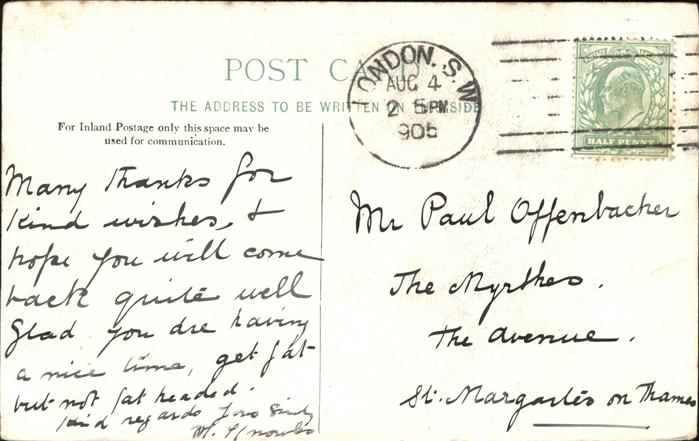 POST CARD
THE ADDRESS TO BE WRITTEN ON THIS SIDE
For Inland Postage only this space may be
used for communication.
LONDON. S.W
AUG 4
2 5PM
905
HALF PENNY
Many thanks for
kind wishes, &
hope you will come
back quite well
Glad you are having
a nice time, get fat
but not fat headed.
kind regards Yours Sincly
M.
Mr Paul Offenbacher
The Myrthes.
The Avenue.
St. Margartes on Thames